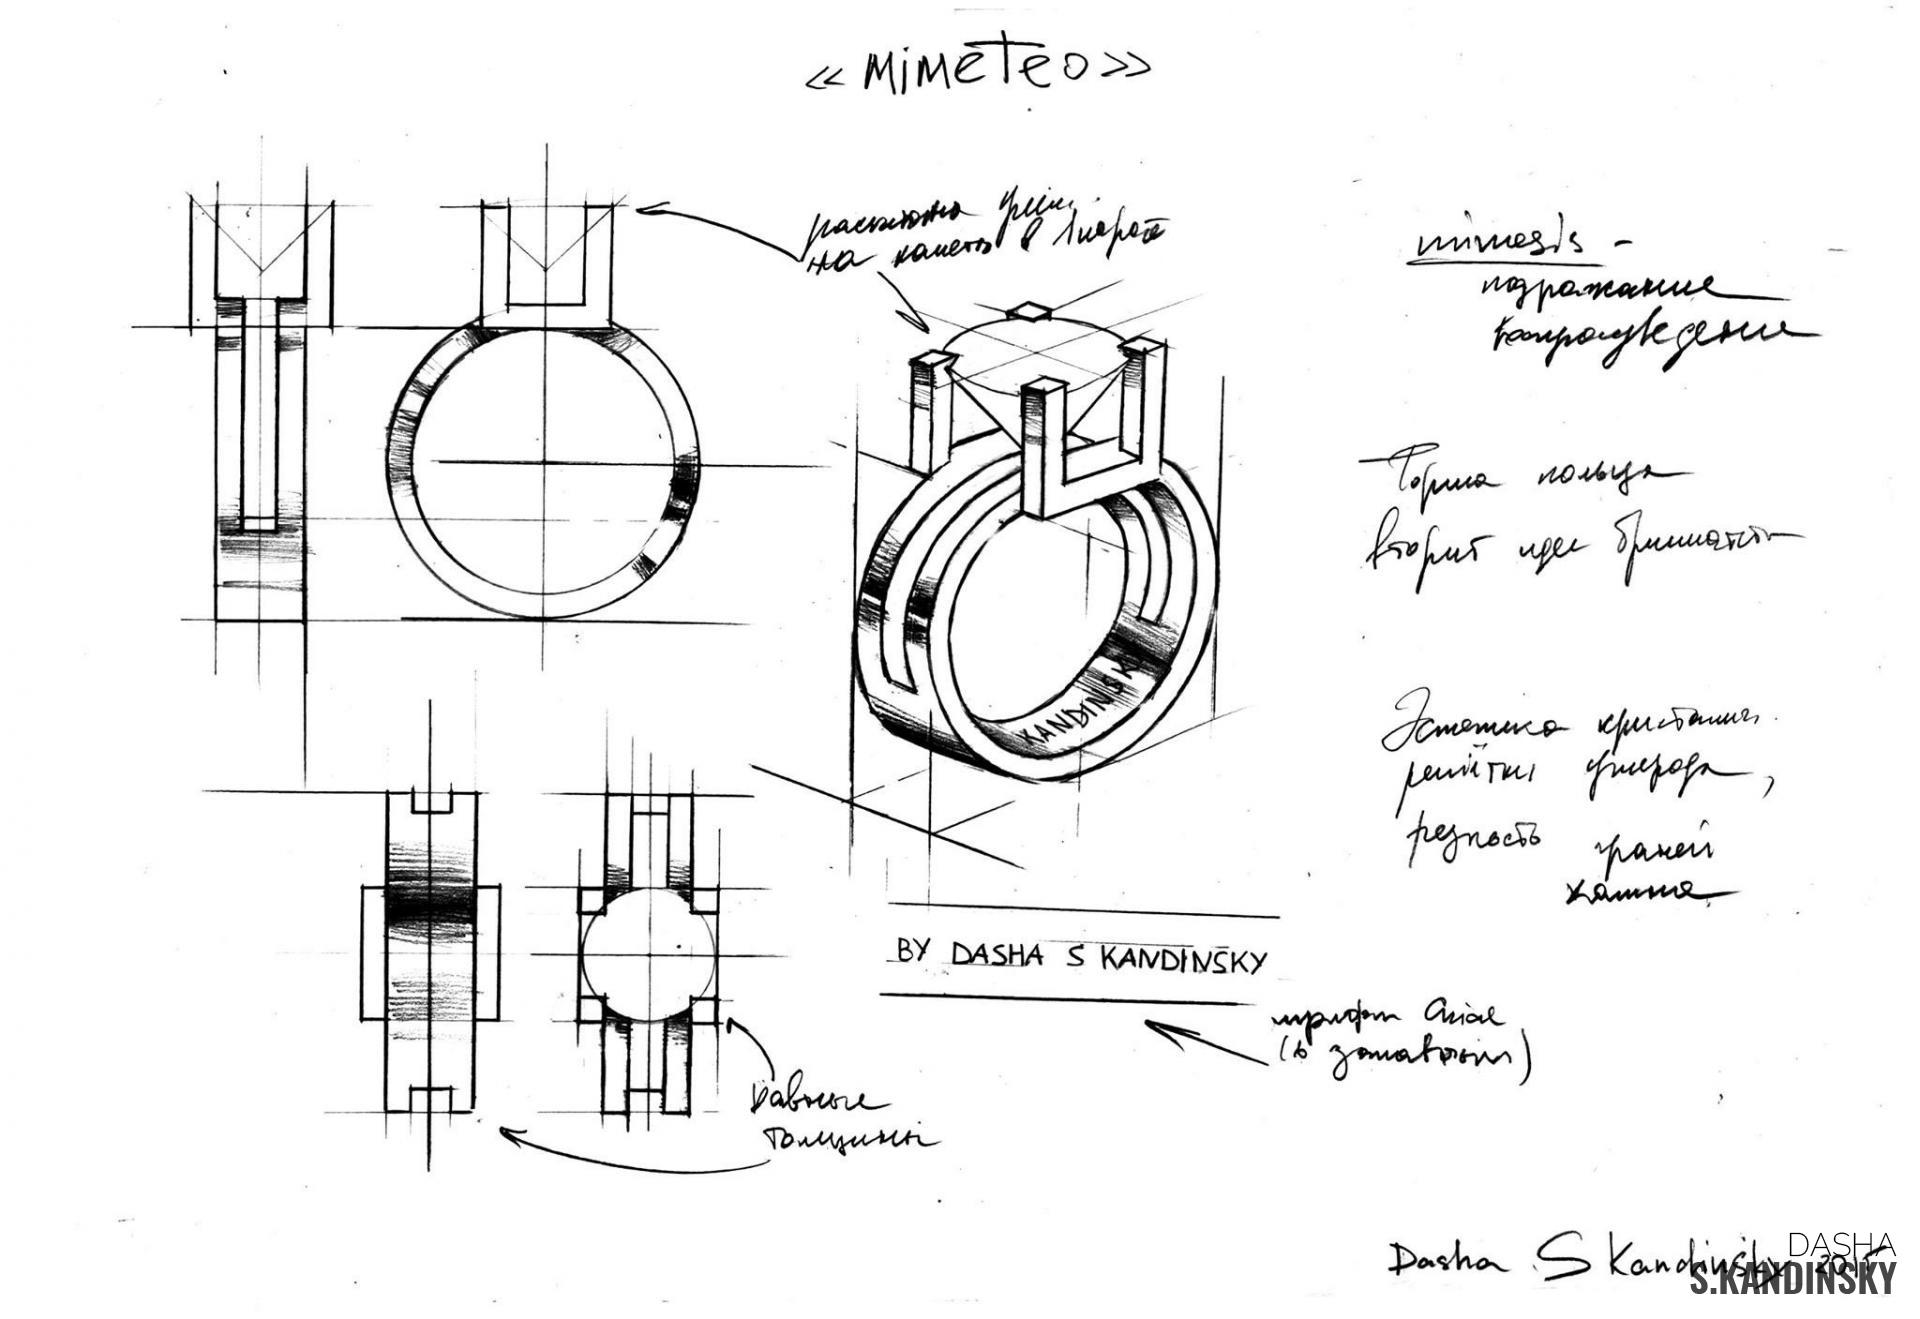 «Mimeteo»
на в 1 карат
mimesis -
подражание
воспроизведение
Форма кольца
вторит идее бриллианта
Эстетика кристаллич.
решётки углерода,
резкость граней
камня
KANDINSKY
BY DASHA S KANDINSKY
шрифт Arial
(6
равные
толщины
Dasha S Kandinsky 2015
DASHA
S.KANDINSKY